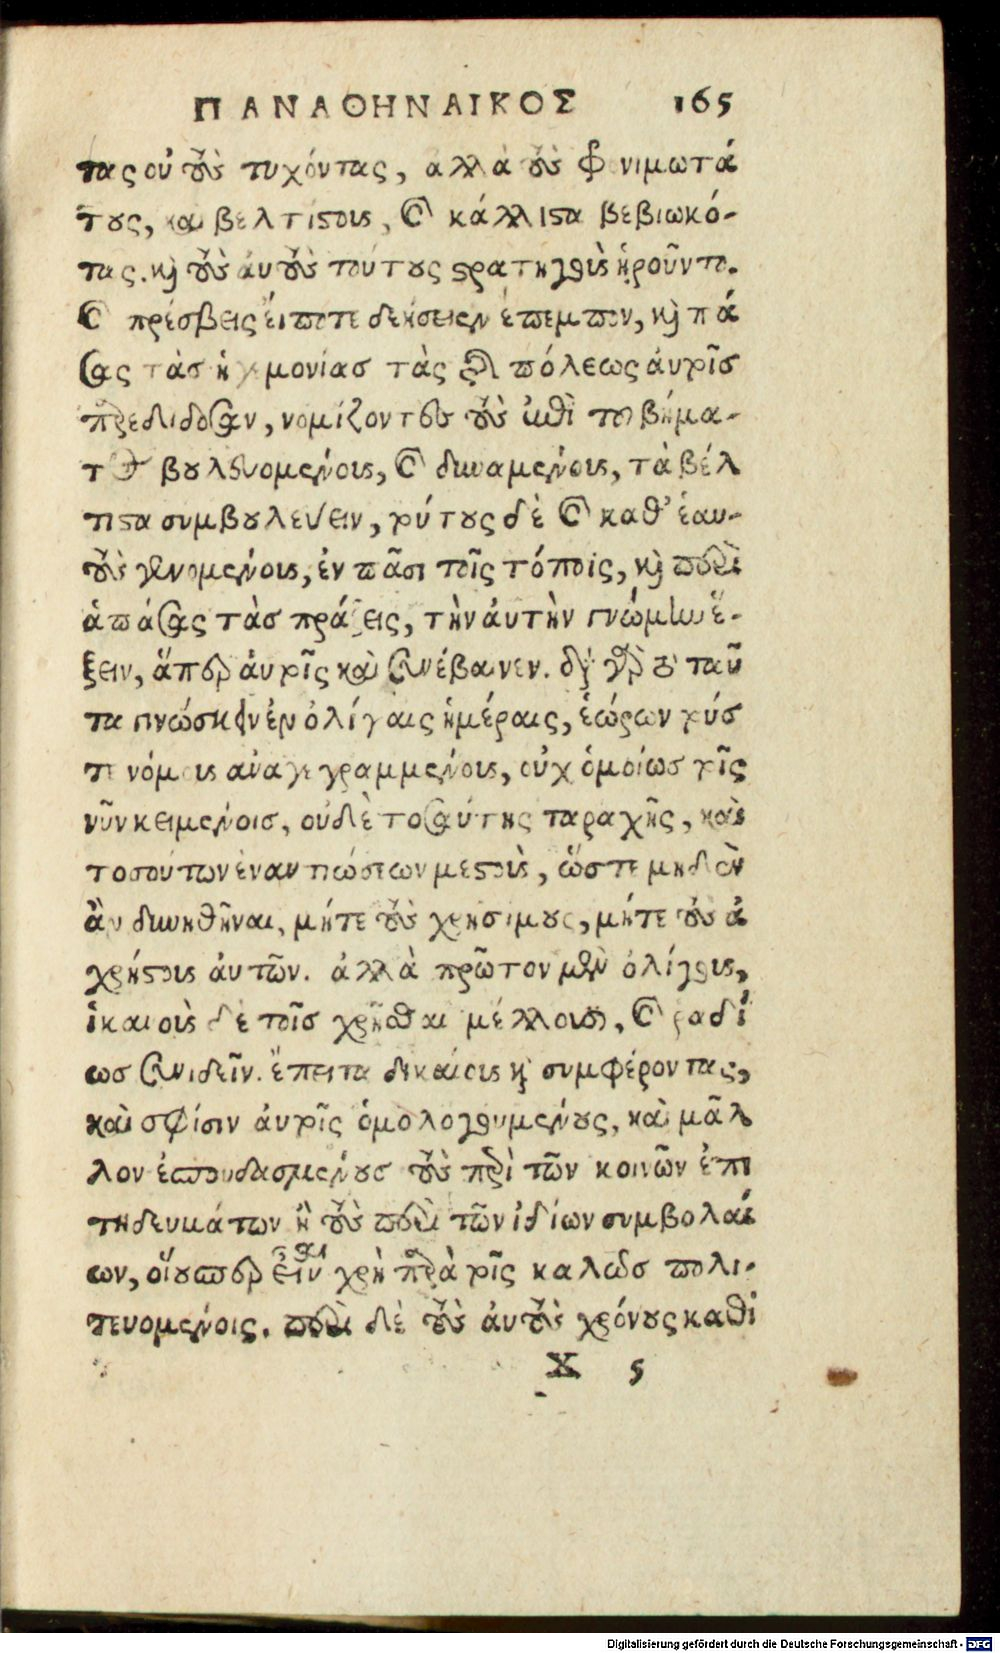 ΠΑΝΑΘΗΝΑΙΚΟΣ 165
τας οὐ τοὺς τυχόντας, ἀλλὰ τοὺς φρονιμωτά
τους, καὶ βελτίστους, καὶ κάλλιστα βεβιωκό-
τας. καὶ τοὺς αὐτοὺς τούτους στρατηγοὺς ᾑροῦντο.
καὶ πρέσβεις εἴ ποτε δεήσειεν ἔπεμπον, καὶ πά
σας τὰσ ἡγεμονίασ τὰς τῆς πόλεως αὐτοῖσ
παρεδίδοσαν, νομίζοντες τοὺς ἐπὶ τοῦ βήμα-
τος βουλευομένους, καὶ δυναμένους, τὰ βέλ
τιστα συμβουλεύειν, τούτους δὲ καὶ καθ' ἑαυ-
τοὺς γενομένους, ἐν πᾶσι τοῖς τόποις, καὶ περὶ
ἁπάσας τὰσ πράξεις, τὴν αὐτὴν γνώμην ἕ-
ξειν, ἅπερ αὐτοῖς καὶ συνέβαινεν. διὰ γὰρ τὸ ταῦ
τα γινώσκειν ἐν ὀλίγαις ἡμέραις, ἑώρων τούσ
τε νόμους ἀναγεγραμμένους, οὐχ ὁμοίωσ τοῖς
νῦν κειμένοισ, οὐδὲ τοσαύτης ταραχῆς, καὶ
τοσούτων ἐναντιώσεων μεστοὺς, ὥστε μηδὲν
ἂν δυνηθῆναι, μήτε τοὺς χρησίμους, μήτε τοὺς ἀ
χρήστους αὐτῶν. ἀλλὰ πρῶτον μὲν ὀλίγους,
ἱκανοὺς δὲ τοῖσ χρῆσθαι μέλλουσι, καὶ ῥαδί
ωσ συνιδεῖν. ἔπειτα δικαίους καὶ συμφέροντας,
καὶ σφίσιν αὐτοῖς ὁμολογουμένους, καὶ μᾶλ
λον ἐσπουδασμένουσ τοὺς περὶ τῶν κοινῶν ἐπι
τηδευμάτων ἢ τοὺς περὶ τῶν ἰδίων συμβολαί
ων, οἵουσπερ εἶναι χρὴ παρὰ τοῖς καλῶσ πολι-
τευομένοις. περὶ δὲ τοὺς αὐτοὺς χρόνους καθί
X 5
Digitalisierung gefördert durch die Deutsche Forschungsgemeinschaft - DFG